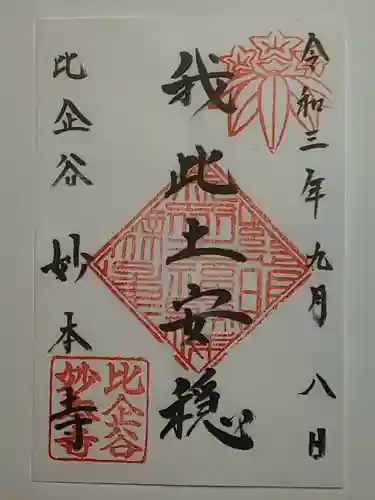 令和三年九月八日
我此土安穏
比企谷
妙本寺
比企谷
妙本寺